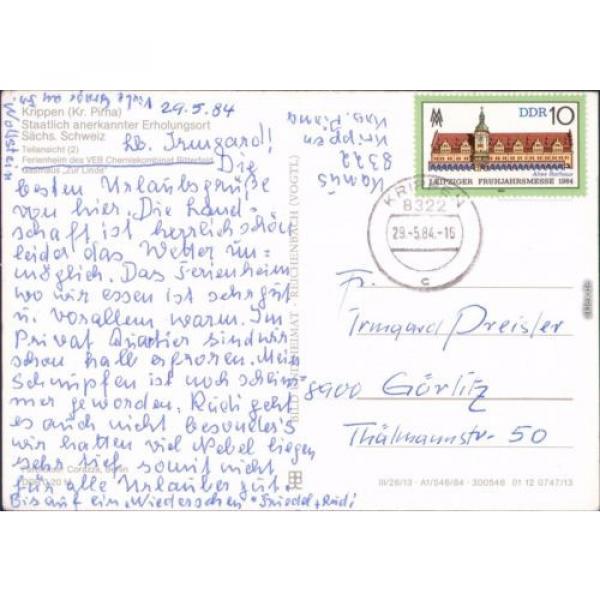 Krippen (Kr. Pirna)
Staatlich anerkannter Erholungsort
Sächs. Schweiz
Teilansicht (2)
Ferienheim des VEB Chemiekombinat Bitterfeld
Gasthaus „Zur Linde"
29.5.84
lb. Irmgard!
Die
besten Urlaubsgrüße
von hier. Die Land-
schaft ist herrlich schön
leider das Wetter un-
möglich. Das Ferienheim
wo wir essen ist sehr gut
u. vorallem warm. Im
Privat Quartier sind wir
schon halb erfroren. Mein
Schnupfen ist noch schlim-
mer geworden. Rudi geht
es auch nicht besonders
wir hatten viel Nebel liegen
sehr tief somit nicht
für alle Urlauber gut.
Bis auf ein „Wiedersehen" Friedel + Rudi
Berlin
BILD UND HEIMAT · REICHENBACH (VOGTL)
8322
Krippen
DDR 10
Altes Rathaus
LEIPZIGER FRÜHJAHRSMESSE 1984
KRIPPEN
8322
29.-5.84.-16
c
Fr.
Irmgard Preisler
8900 Görlitz
Thälmannstr. 50
III/26/13 · A1/546/84 · 300546 01 12 0747/13